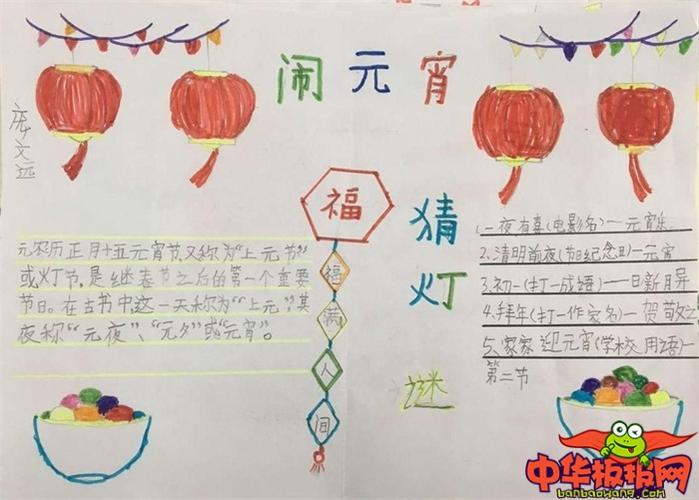 闹元宵
庞文远
元农历正月十五元宵节,又称为“上元节”
或灯节,是继春节之后的第一个重要
节日。在古书中,这一天称为“上元”,其
夜称“元夜”、“元夕”或“元宵”。
福
福
满
人
间
猜灯谜
1.一夜有喜(电影名)—元宵乐
2.清明前夜(节日纪念日)—元宵
3.初一(打一成语)—日新月异
4.拜年(打一作家名)—贺敬之
5.家家迎元宵(学校用语)—
第二节
中华板报网
banbaowang.com